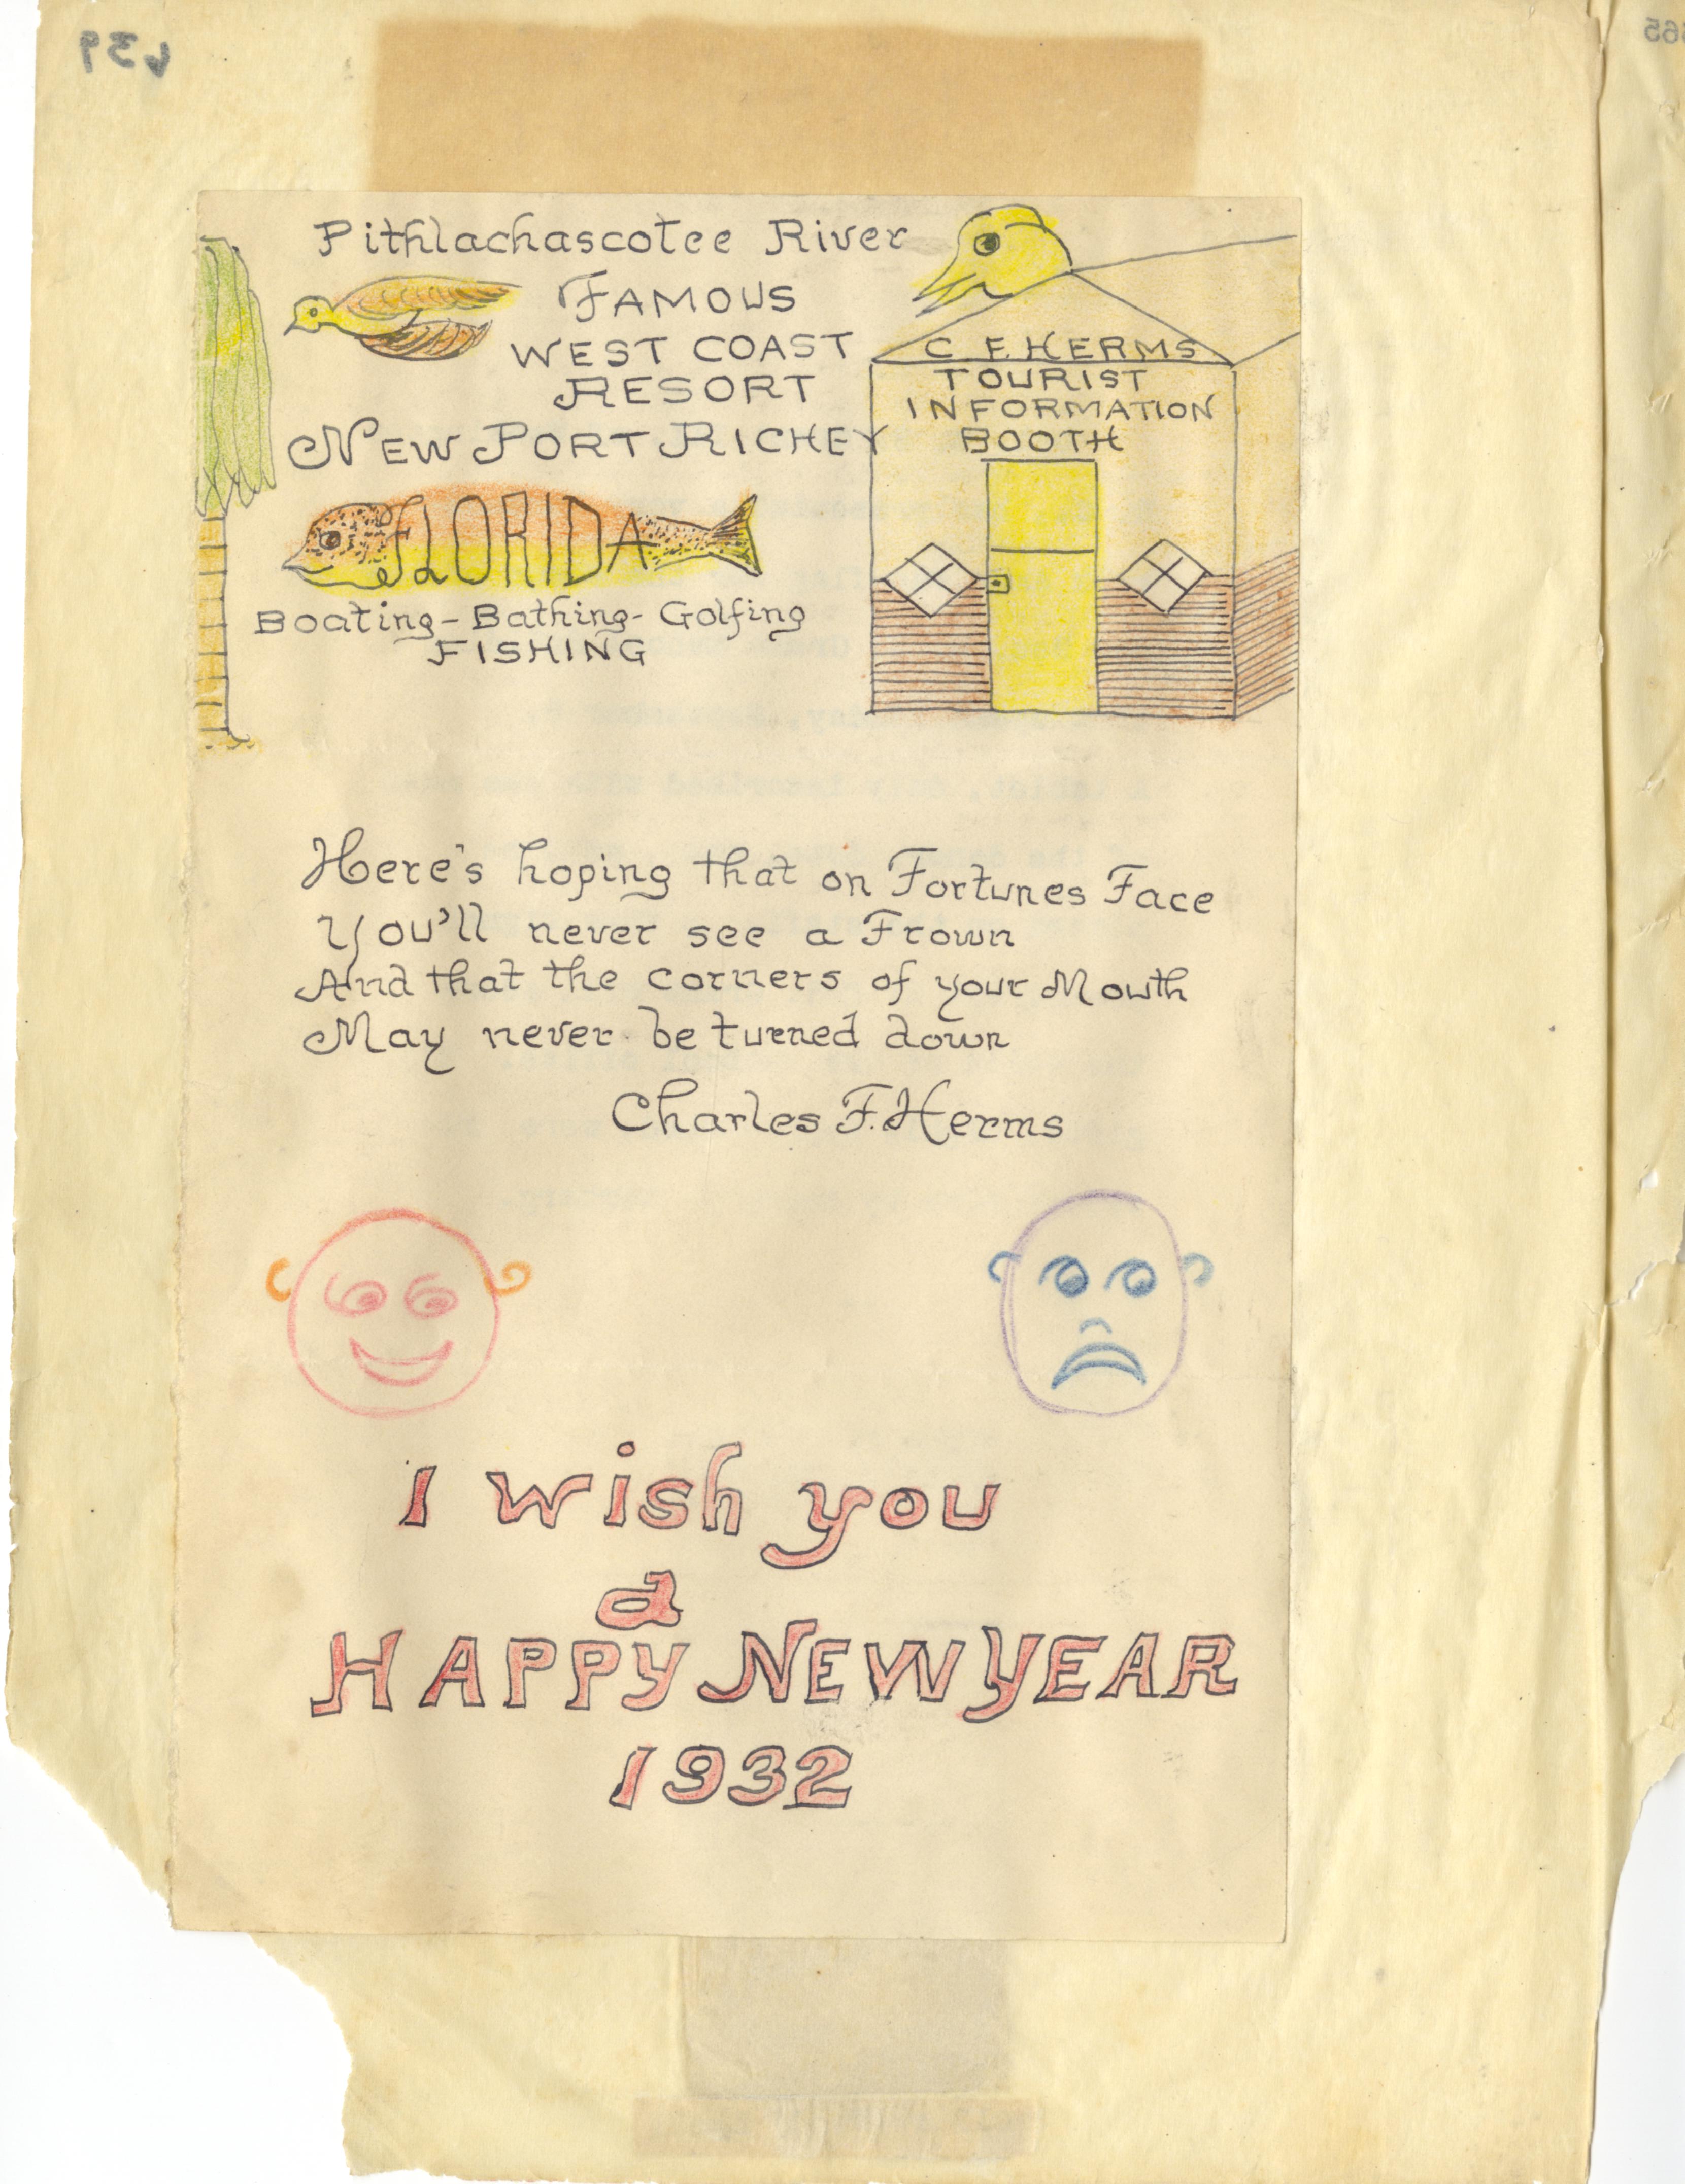 Pithlachascotee River
FAMOUS
WEST COAST
RESORT
NEW PORT RICHEY
FLORIDA
Boating - Bathing - Golfing
FISHING
C. F. HERMS
TOURIST
INFORMATION
BOOTH
Here's hoping that on Fortunes Face
You'll never see a Frown
And that the corners of your Mouth
May never be turned down
Charles F. Herms
I wish you
a
HAPPY NEW YEAR
1932